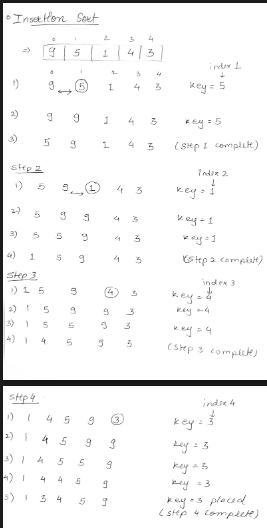 Insertion Sort
0 1 2 3 4
⇒ 9 5 1 4 3
0 1 2 3 4 index 1
1) 9 ↔ 5 1 4 3 key = 5
2) 9 9 1 4 3 key = 5
3) 5 9 1 4 3 (Step 1 complete)
Step 2
index 2
1) 5 9 ↔ 1 4 3 key = 1
2) 5 9 9 4 3 key = 1
3) 5 5 9 4 3 key = 1
4) 1 5 9 4 3 (Step 2 complete)
Step 3
index 3
1) 1 5 9 4 3 key = 4
2) 1 5 9 9 3 key = 4
3) 1 5 5 9 3 key = 4
4) 1 4 5 9 3 (Step 3 complete)
Step 4
index 4
1) 1 4 5 9 3 key = 3
2) 1 4 5 9 9 key = 3
3) 1 4 5 5 9 key = 3
4) 1 4 4 5 9 key = 3
5) 1 3 4 5 9 key = 3 placed
(step 4 complete)